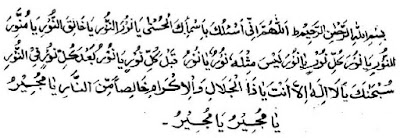 بِسْمِ اللهِ الرَّحْمٰنِ الرَّحِيْمِ اَللّٰهُمَّ اِنِّيْ اَسْئَلُكَ بِاَسْمَآئِكَ الْحُسْنٰى يَا نُوْرَ النُّوْرِ يَا خَالِقَ النُّوْرِ يَا مُنَوِّرَ
لِلنُّوْرِ يَا نُوْرَ كُلِّ نُوْرٍ يَا نُوْرُ لَيْسَ مِثْلَهُ نُوْرٌ يَا نُوْرُ قَبْلَ كُلِّ نُوْرٍ يَا نُوْرُ بَعْدَ كُلِّ نُوْرٍ فِى النُّوْرِ
سُبْحٰنَكَ يَا لَا اِلٰهَ اِلَّا اَنْتَ يَا ذَا الْجَلَالِ وَالْاِكْرَامِ خَالِصًا مِّنَ النَّارِ يَا مُجِيْرُ
يَا مُجِيْرُ يَا مُجِيْرُ.